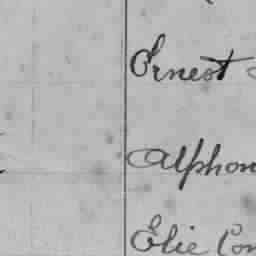 Ernest
Alphon
Elie Con